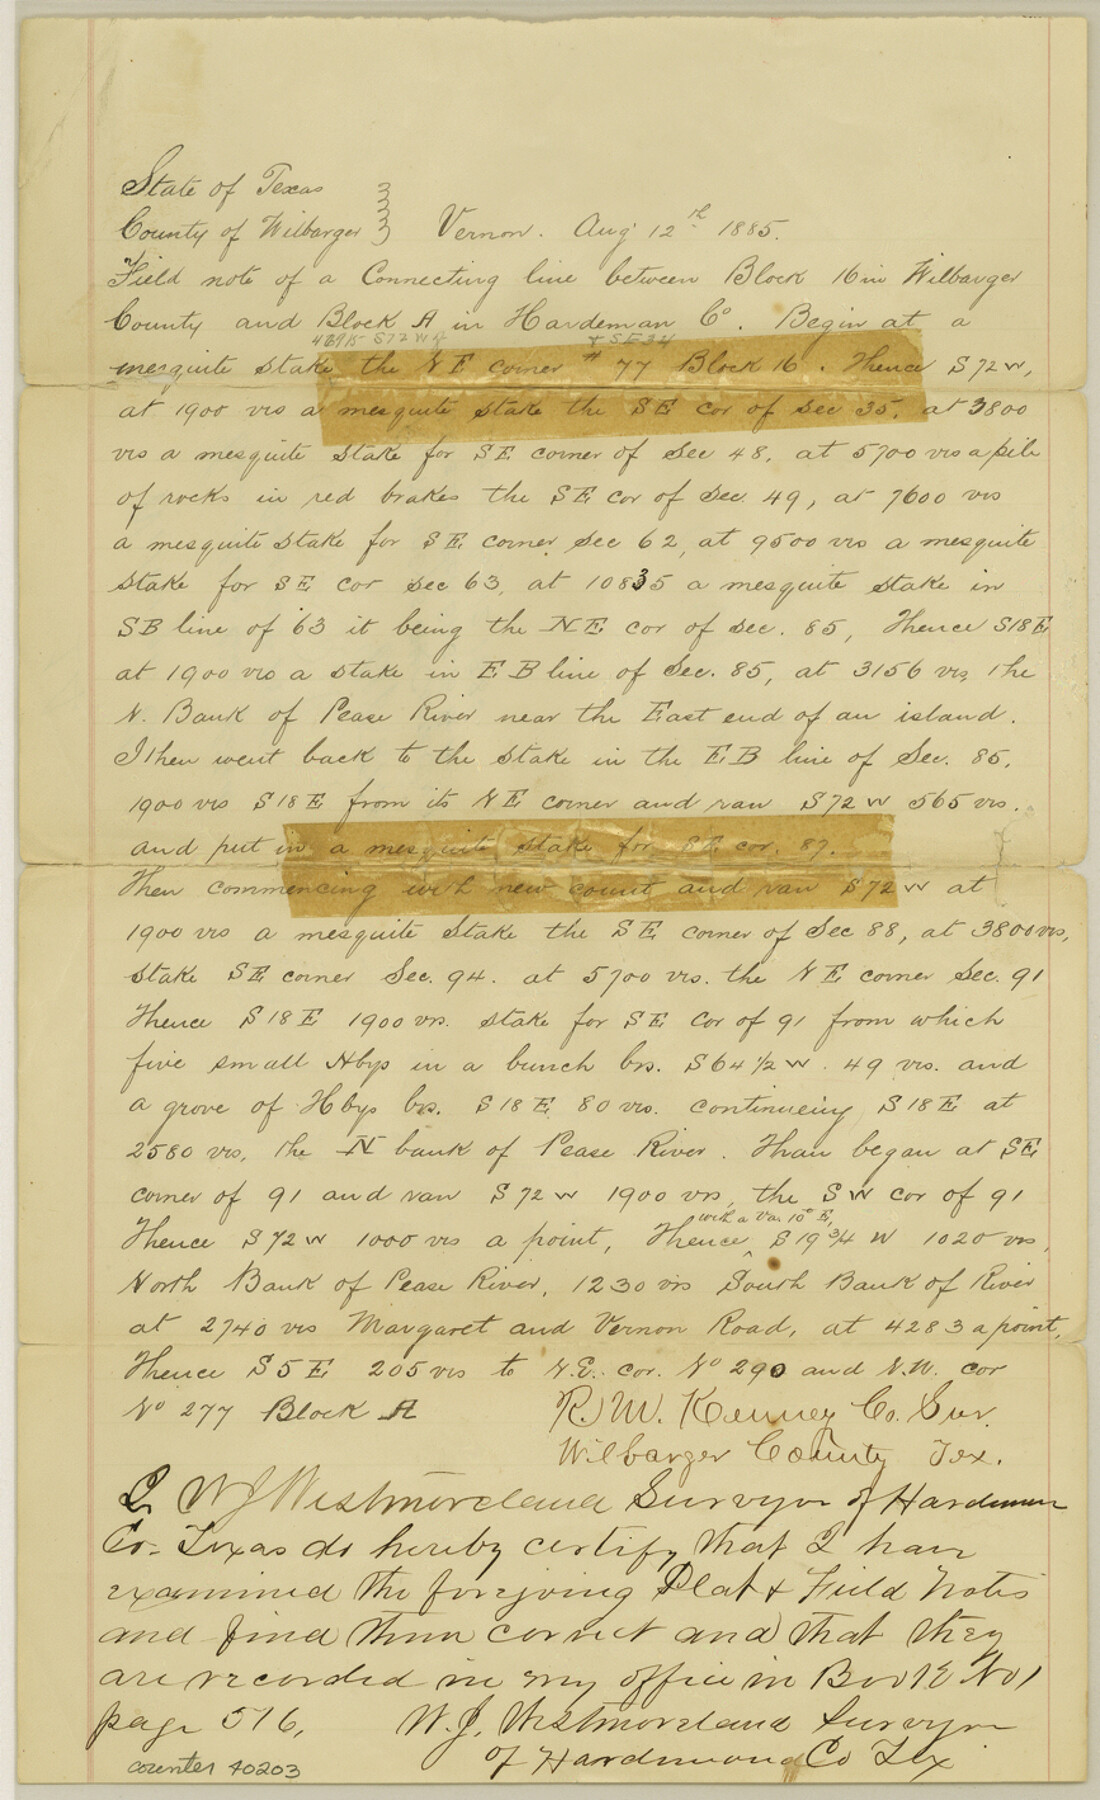 State of Texas }
County of Wilbarger } Vernon. Aug 12th 1885.
Field note of a Connecting line between Block 16 in Wilbarger
County and Block A in Hardeman Co. Begin at a
S72W & SE 34
mesquite stake the NE corner # 77 Block 16. Thence S72W,
at 1900 vrs a mesquite stake the SE cor of Sec 35. at 3800
vrs a mesquite stake for SE corner of Sec 48, at 5700 vrs a pile
of rocks in red brakes the SE cor of Sec. 49, at 7600 vrs
a mesquite stake for SE corner Sec 62, at 9500 vrs a mesquite
stake for SE cor Sec 63, at 10835 a mesquite stake in
SB line of 63 it being the NE cor of Sec. 85, Thence S18E
at 1900 vrs a stake in EB line of Sec. 85, at 3156 vrs, the
N. Bank of Pease River near the East end of an island.
I then went back to the stake in the EB line of Sec. 85,
1900 vrs S18E from its NE corner and ran S72W 565 vrs.
and put in a mesquite stake for SE cor. 87.
Then commencing with new count and ran S72W at
1900 vrs a mesquite stake the SE corner of Sec 88, at 3800 vrs,
stake SE corner Sec. 94. at 5700 vrs. the NE corner Sec. 91
Thence S18E 1900 vrs. stake for SE cor of 91 from which
five small Hbys in a bunch brs. S64 1/2 W. 49 vrs. and
a grove of Hbys brs. S18E 80 vrs. continueing S18E at
2580 vrs, the N bank of Pease River. Than began at SE
corner of 91 and ran S72W 1900 vrs, the SW cor of 91
with a Var 10° E,
Thence S72W 1000 vrs a point, Thence ^ S19 3/4 W 1020 vrs,
North Bank of Pease River, 1230 vrs South Bank of River
at 2740 vrs Margaret and Vernon Road, at 4283 a point,
Thence S5E 205 vrs to N.E. cor. No 290 and N.W. cor
No 277 Block A R.M. Kenney Co. Sur.
Wilbarger County Tex.
I, W J Westmoreland Surveyor of Hardeman
Co. Texas do hereby certify that I have
examined the foregoing Plat & Field Notes
and find them correct and that they
are recorded in my office in Book No 1
page 516, W. J. Westmoreland Surveyor
of Hardeman Co Tex
counter 40203